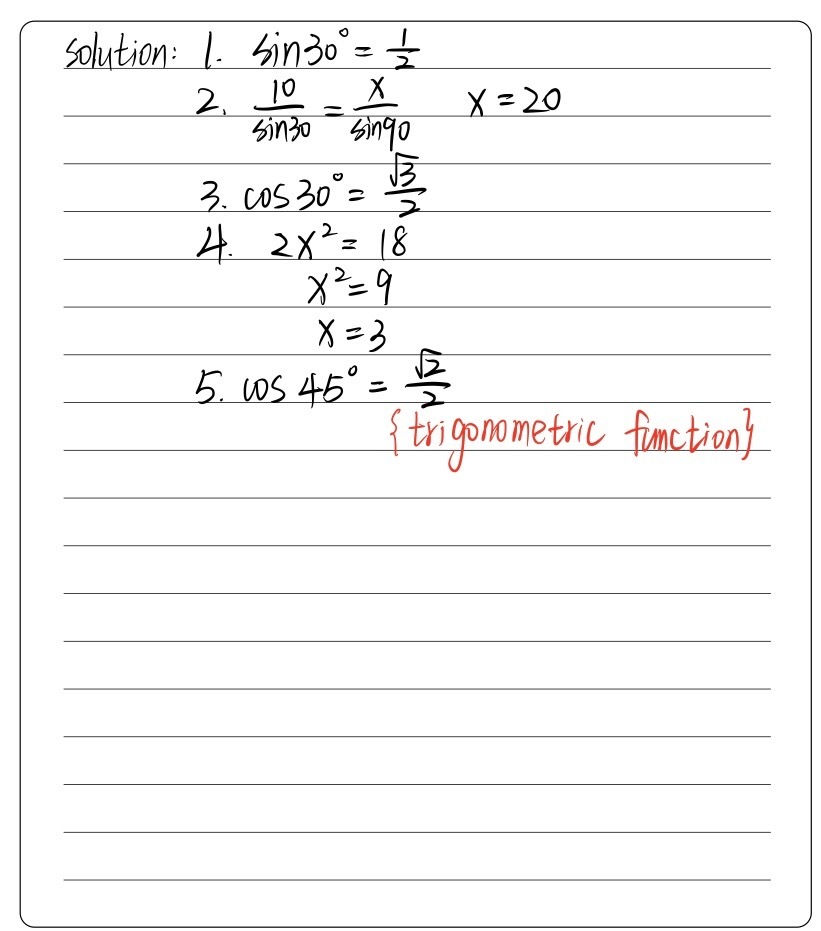 solution: 1. sin30° = 1/2
2. 10/sin30 = x/sin90 x = 20
3. cos30° = √3/2
4. 2x² = 18
x² = 9
x = 3
5. cos 45° = √2/2
{trigonometric function}